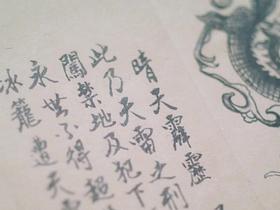 晴天霹靂
此乃天雷之刑
闖禁地及犯下
永世不得超
冰籠遭天雷